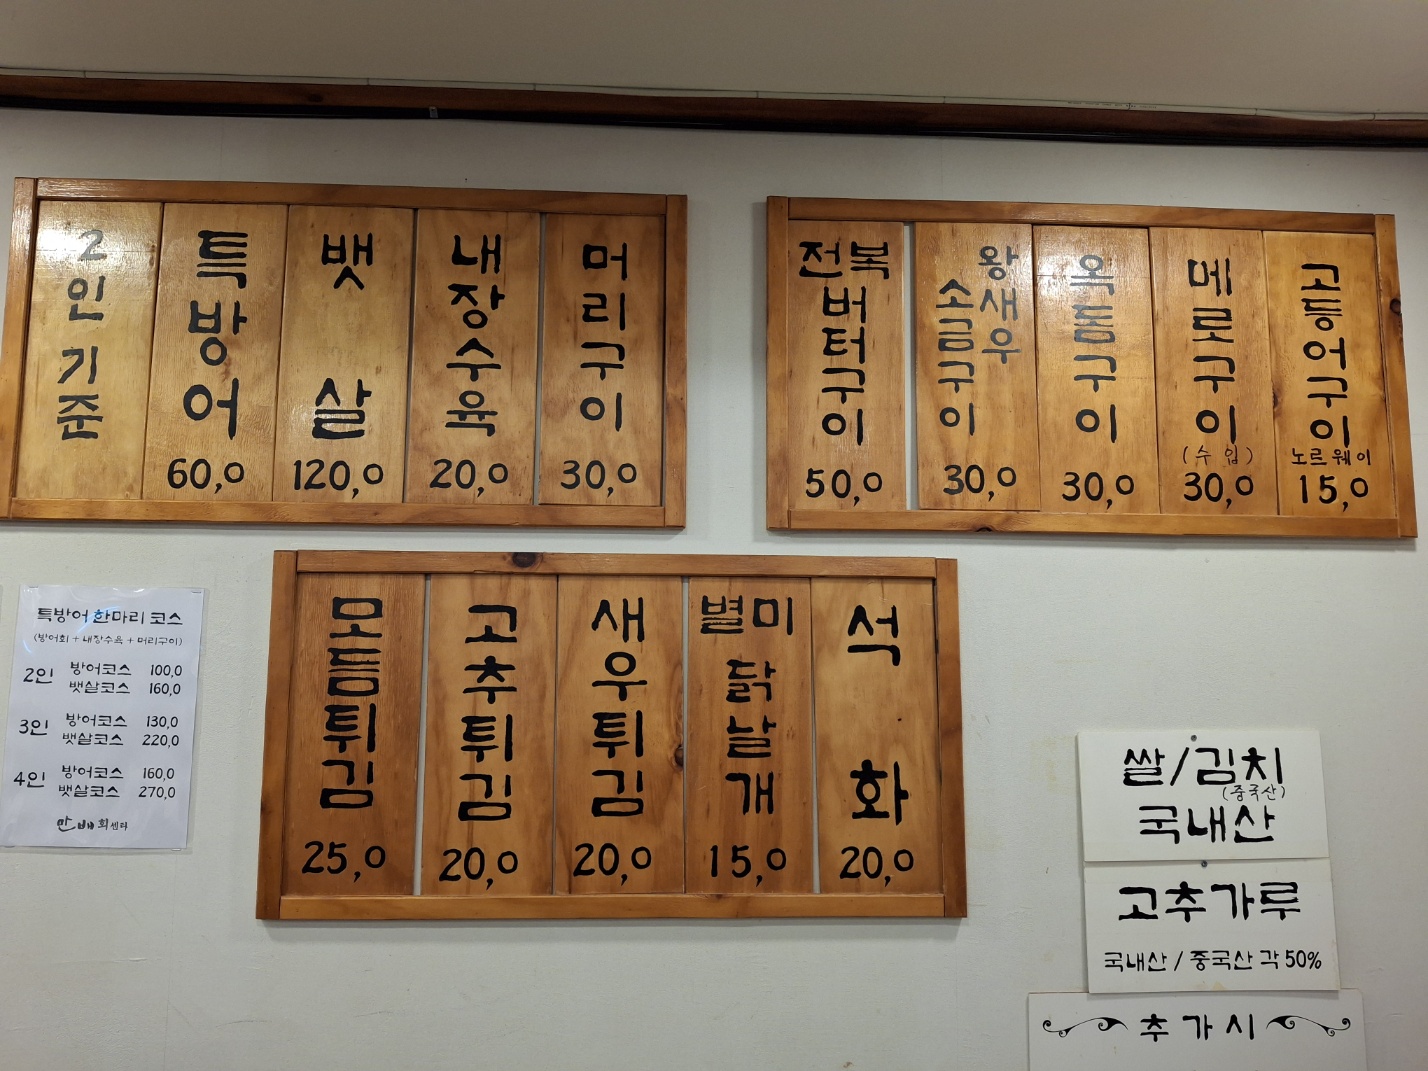 2인 기준
특방어
60,0
뱃살
120,0
내장수육
20,0
머리구이
30,0
전복
버터구이
50,0
왕새우
소금구이
30,0
옥돔구이
30,0
메로구이
(수입)
30,0
고등어구이
노르웨이
15,0
모듬튀김
25,0
고추튀김
20,0
새우튀김
20,0
별미
닭날개
15,0
석화
20,0
특방어 한마리 코스
(방어회 + 내장수육 + 머리구이)
2인 방어코스 100,0
뱃살코스 160,0
3인 방어코스 130,0
뱃살코스 220,0
4인 방어코스 160,0
뱃살코스 270,0
만배회센타
쌀/김치
(중국산)
국내산
고추가루
국내산 / 중국산 각 50%
추가시